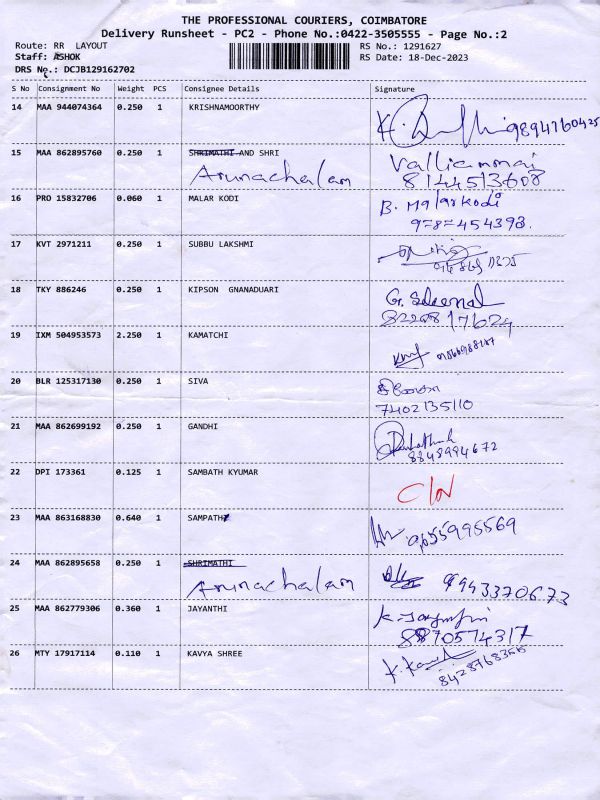 THE PROFESSIONAL COURIERS, COIMBATORE
Delivery Runsheet - PC2 - Phone No.:0422-3505555 - Page No.:2
Route: RR LAYOUT RS No.: 1291627
Staff: ASHOK RS Date: 18-Dec-2023
DRS No.: DCJB129162702
S No Consignment No Weight PCS Consignee Details Signature
14 MAA 944074364 0.250 1 KRISHNAMOORTHY
15 MAA 862895760 0.250 1 SHRIMATHI AND SHRI Valliammai
Arunachalam 8144513608
16 PRO 15832706 0.060 1 MALAR KODI B. Malarkodi
17 KVT 2971211 0.250 1 SUBBU LAKSHMI
18 TKY 886246 0.250 1 KIPSON GNANADUARI
19 IXM 504953573 2.250 1 KAMATCHI
20 BLR 125317130 0.250 1 SIVA
7402135110
21 MAA 862699192 0.250 1 GANDHI
8848994672
22 DPI 173361 0.125 1 SAMBATH KYUMAR
23 MAA 863168830 0.640 1 SAMPATH
24 MAA 862895658 0.250 1 SHRIMATHI
Arunachalam 9943370673
25 MAA 862779306 0.360 1 JAYANTHI
8870574317
26 MTY 17917114 0.110 1 KAVYA SHREE